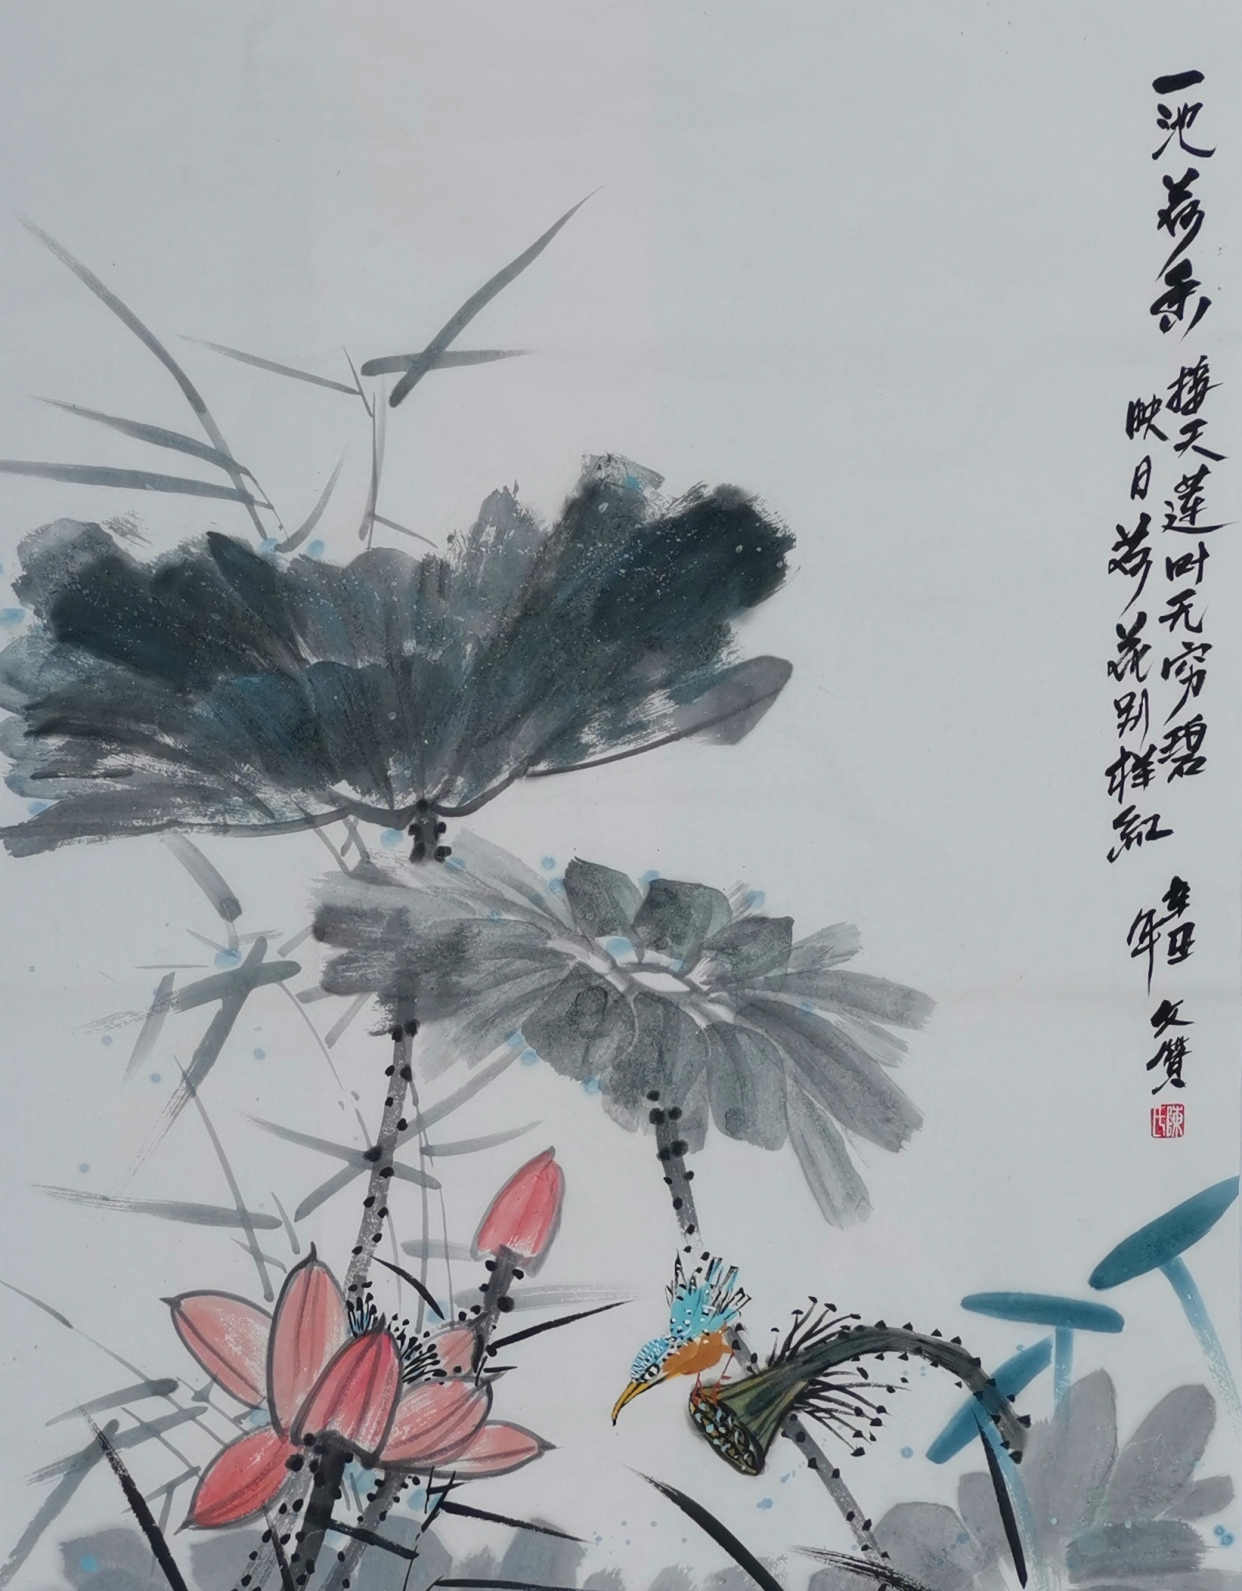 一池荷香
接天莲叶无穷碧
映日荷花别样红
辛丑
年
文赞
陳氏